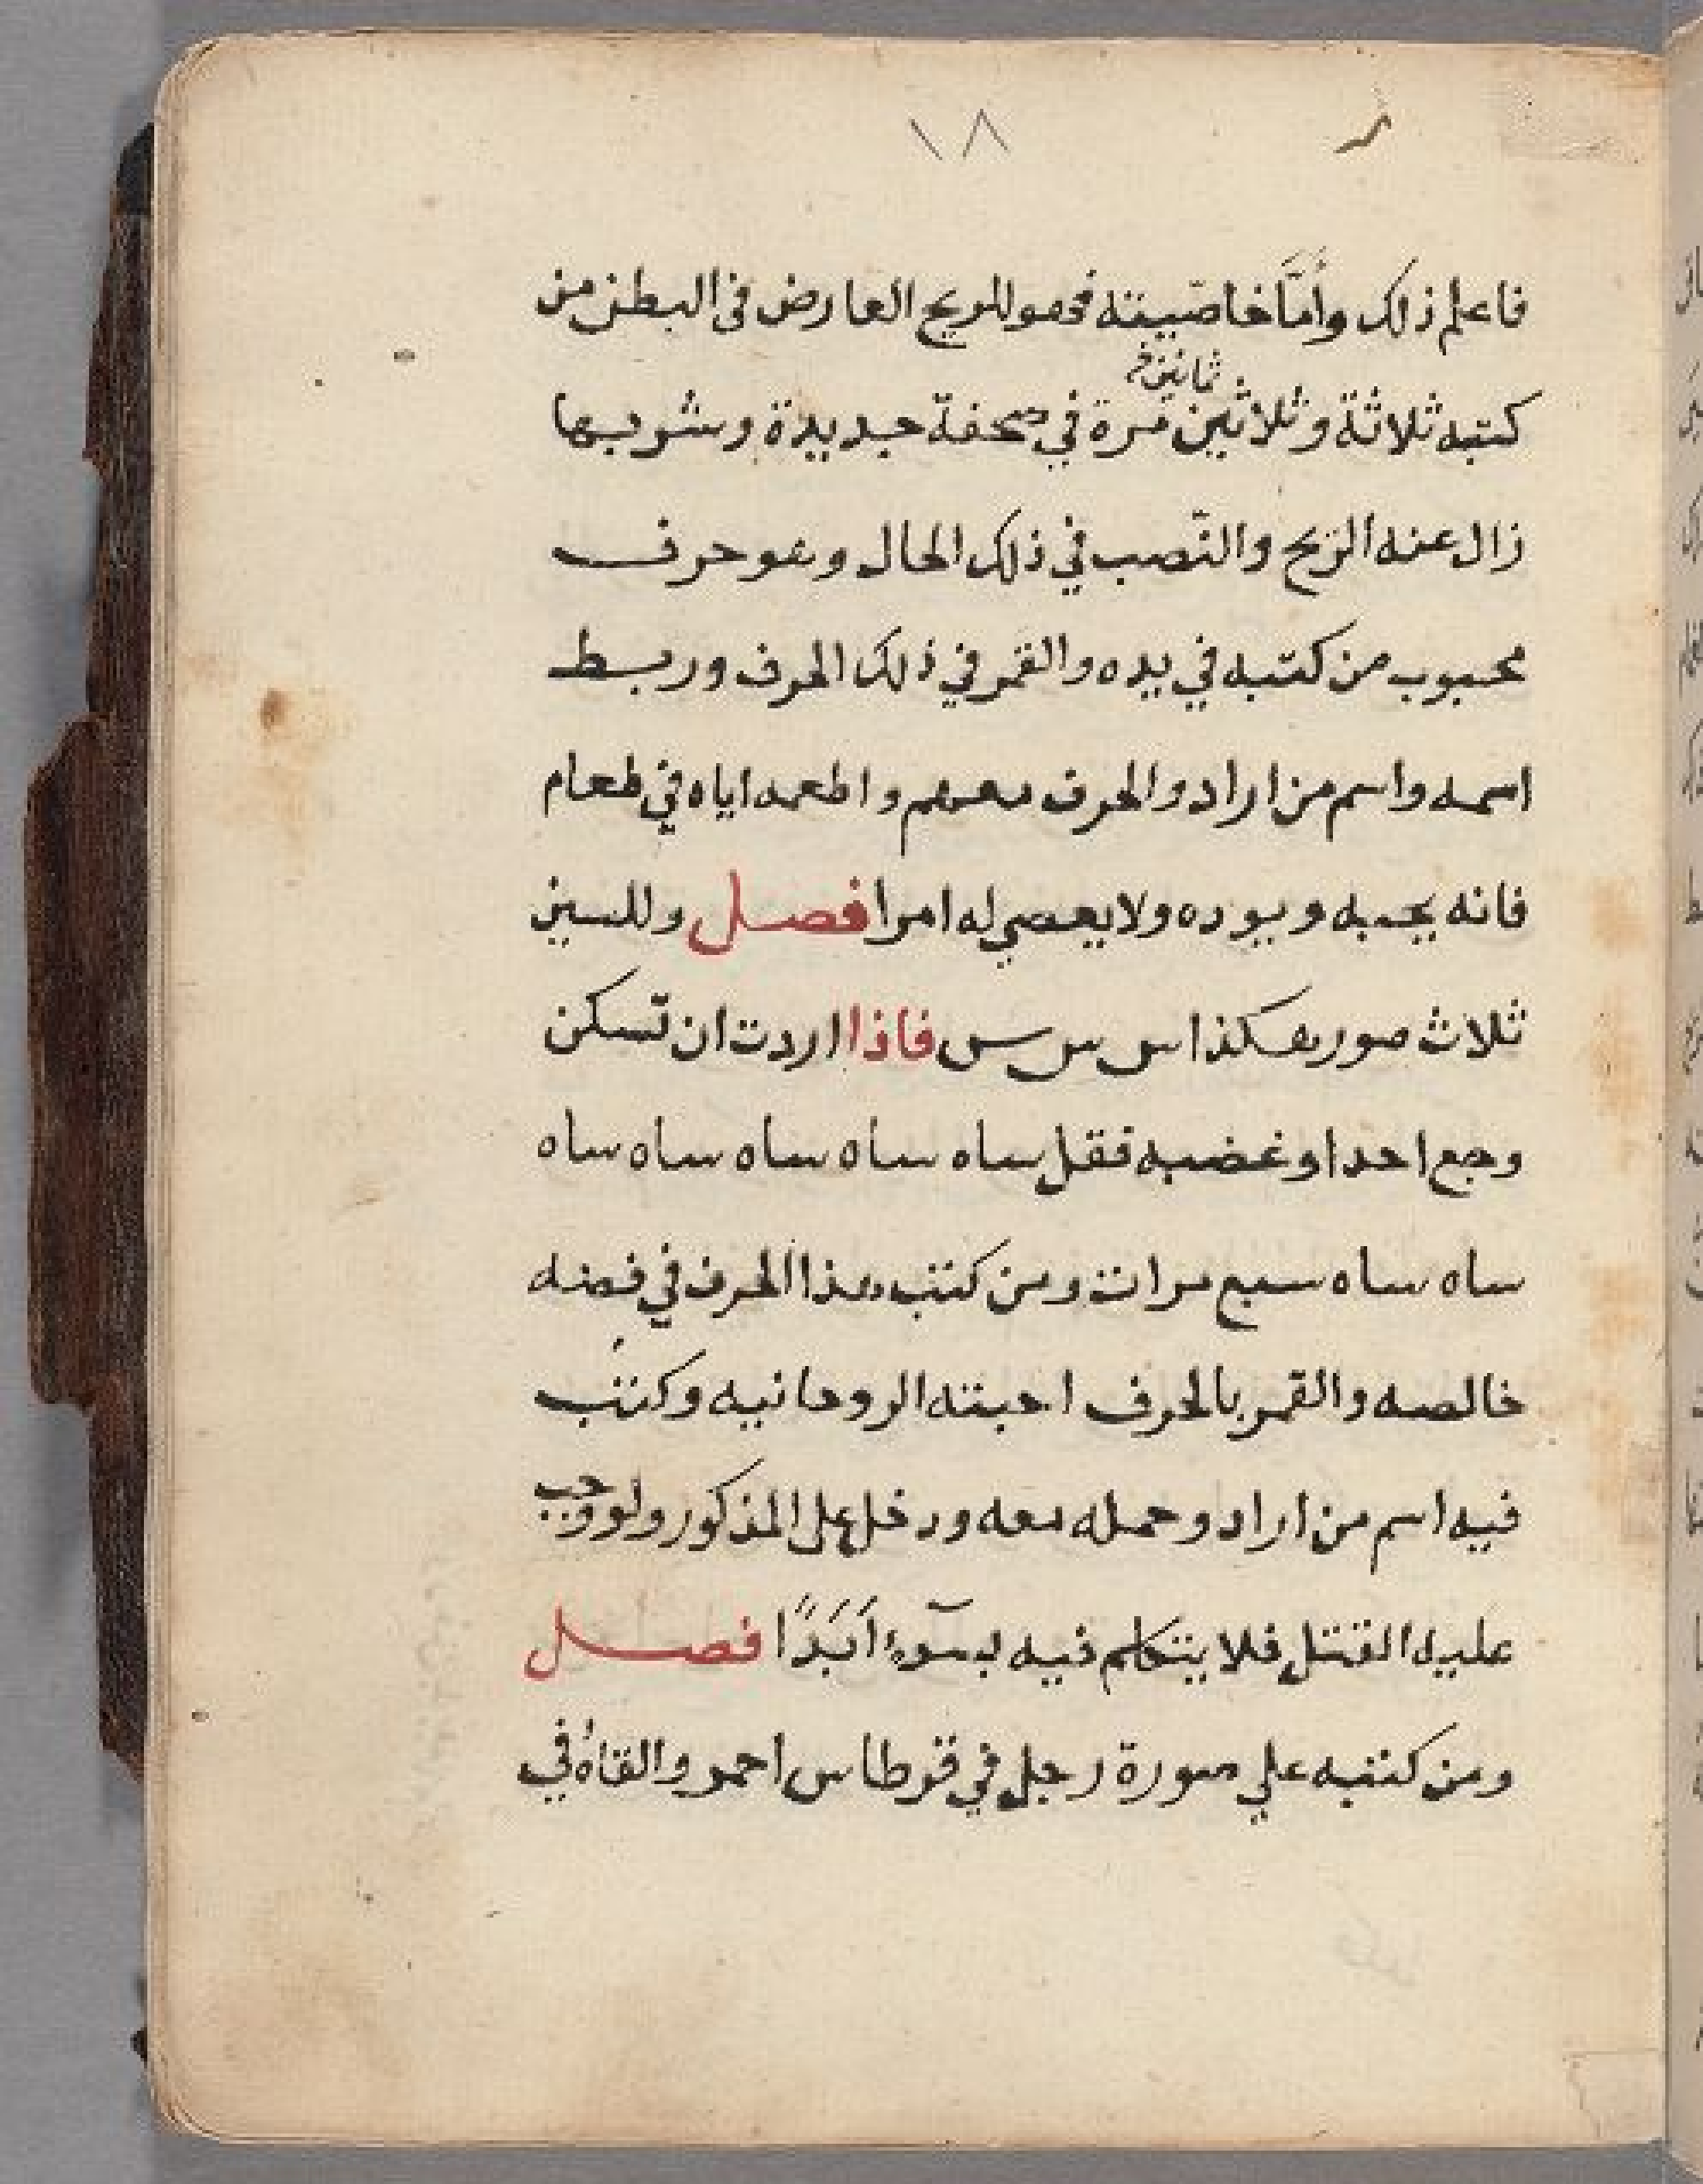 ١٨
فاعلم ذلك وأمَّا خاصّيته فهو للريح العارض فى البطن من
ثمانين
كتبه ثلاثة وثلاثين مرة في صحفة جديدة وشربها
زال عنه الريح والنّصب في ذلك الحال وهو حرف
محبوب من كتبه في يده والقمر في ذلك الحرف وربط
اسمه واسم من اراد والحرف معهم واطعمه اياه في طعام
فانه يحبه ويوده ولا يعصي له امرا فصل وللسين
ثلاث صور هكذا س س س فاذا اردت ان تسكن
وجع احدا وغضبه فقل ساه ساه ساه ساه ساه
ساه ساه سبع مرات ومن كتب هذا الحرف في فضه
خالصه والقمر بالحرف احبته الروحانيه وكتب
فيه اسم من اراد وحمله معه ودخل على المذكور ولو وجب
عليه القتل فلا يتكلم فيه بسوء اَبَدًا فصل
ومن كتبه علي صورة رجل في قرطاس احمر والقاه في